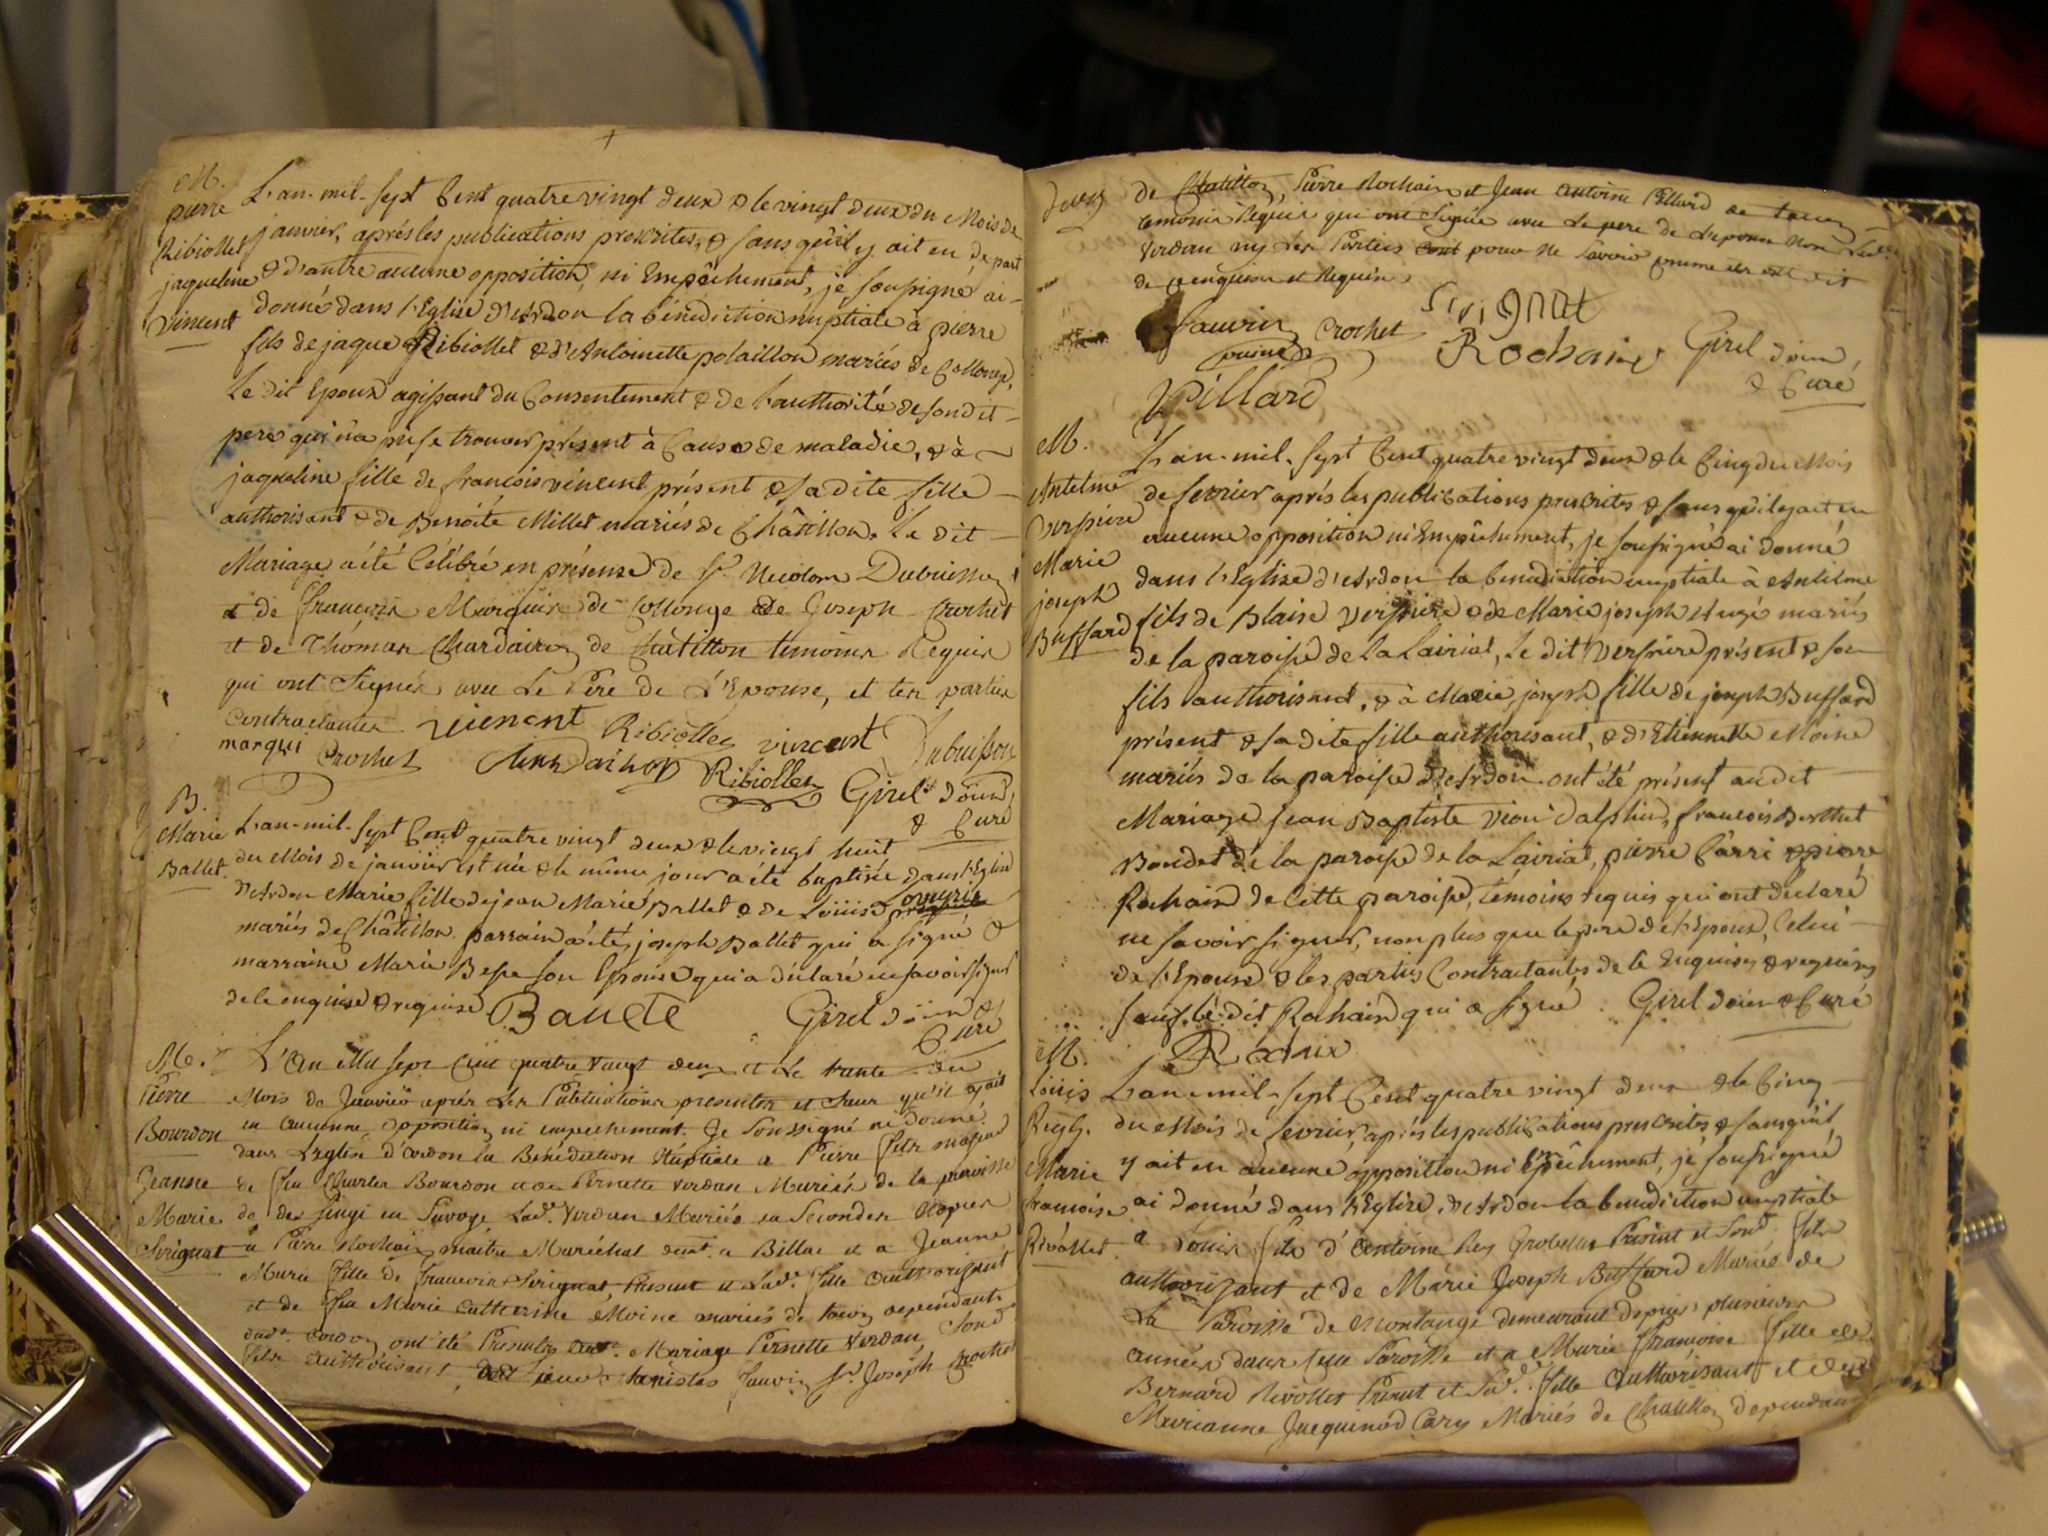 M.
pierre
Ribiollet
jaqueline
Vincent
L'an mil sept Cent quatre vingt deux & le vingt deux du Mois de
janvier, aprés les publications prescrites, & sans qu'il y ait eu de part
& d'autre aucune opposition, ni Empêchement, je soussigné ai
donné dans l'Eglise d'Ardon la bénédiction nuptiale à pierre
fils de jaque Ribiollet & d'Antoinette polaillon mariés de Collonge,
le dit Epoux agissant du Consentement & de l'authorité de son dit
pere qui n'a pu se trouver présent à Cause de maladie, & à
jaqueline fille de francois vincent présent & sa dite fille
authorisant & de Benoite Millet mariés de Châtillon. Le dit
Mariage a été Célébré en présence de Sr. Nicolas Dubuisson
& de françois Marquis de Collonge de Joseph Crochet
et de Thomas Chardairon de Chatillon temoins Requis
qui ont Signés avec Le Pere de L'Epouse, et les parties
Contractantes vienent Ribiollet vincent Dubuisson
marqui Crochet Ribiollet Girel doien
& Curé
B.
Marie
Ballet.
L'an mil sept Cent quatre vingt deux & le vingt huit
du Mois de janvier est née & le même jour a été baptisée dans l'Eglise
d'Ardon Marie fille de jean Marie Ballet & de Loüise
mariés de Châtillon. parrain a été joseph Ballet qui a signé &
marraine Marie Besse son Epouse qui a déclaré ne savoir signer
de le enquise & requise. Girel doien &
Curé
M.
Pierre
Bourdon
Jeanne
Marie
Sirignat
L'an Mil sept Cent quatre vingt deux et Le trante du
Mois de Janvier après Les Publications prescrites et sans qu'il y ait
eu aucunne opposition ni empechement. Je Soussigné ai Donné
dans L'eglise d'ardon La Benediction Nuptiale a Pierre fils majeur
de feu Charles Bourdon et de Pernette Verdan Mariés de la paroisse
de en Savoye, Lade. Verdan Mariée en Secondes Nopces
a Pierre Rochaix maitre Maréchal demt. a Billac et a Jeanne
Marie fille de francois Sirignat, Present et Sade. fille Authorisant
et de feu Marie Catherine Moine mariés de dependant
dudt. ardon ont été Presents audt. Mariage Pernette Verdan Sond.
fils Authorisant, Sieur Stanislas fauvin Sr. Joseph Crochet
de Chatillon, Pierre Rochaix et Jean Antoine Pillard de
temoins Requis qui ont Signés avec Le pere de L'epouse Non
Verdan ny Les Parties pour Ne Savoir comme ils ont dit
de enquises et Requises.
fauvin Crochet Sirignat
Rochaix Girel doien
& Curé
Pillard
M.
Antelme
Verpiere
Marie
joseph
Buffard
L'an mil sept Cent quatre vingt deux & le Cinq du Mois
de fevrier aprés les publications prescrites & sans qu'il y ait eu
aucune opposition ni Empêchement, je soussigné ai donné
dans l'Eglise d'Ardon la benediction nuptiale à Antelme
fils de Blaise Verpiere & de Marie joseph mariés
de la paroisse de La Lairiat, Le dit Verpiere présent & son
fils authorisant, & à Marie joseph fille de joseph Buffard
présent & sa dite fille authorisant, & d'Etiennette Moine
mariés de la paroisse d'Ardon. ont été présent au dit
Mariage jean Baptiste Vion dalphin, francois Berthet
Bondet de la paroisse de la Lairiat, pierre Carri & pierre
Rochaix de Cette paroisse, témoins requis qui ont declaré
ne savoir signer, non plus que le pere de l'Epoux, Celui
de l'Epouse & les parties Contractantes de le Enquises & requises
sauf le dit Rochaix qui a signé. Girel doien & Curé
M.
Loüis
Rey
Marie
francoise
Rivollet
L'an mil sept Cent quatre vingt deux & le Cinq
du Mois de fevrier, aprés les publications prescrites & sans qu'il
y ait eu aucune opposition ni Empêchement, je soussigné
ai donné dans l'Eglise d'Ardon la benediction nuptiale
à Louis fils d'Antoine Rey Grobellet Présent et Sond. fils
authorisant et de Marie Joseph Buffard Mariés de
La Paroisse de Montange demeurant depuis plusieurs
années dans Paroisse et a Marie françoise fille de
Bernard Rivollet Present et Sade. fille Authorisant et de
Marianne Jacquinod Cary Mariés de Chatillon Dependant